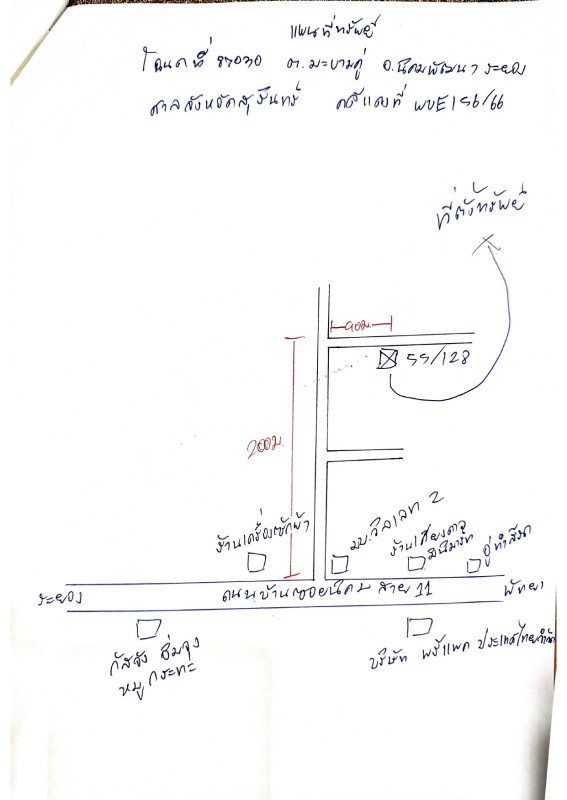 แผนที่ทรัพย์
โฉนดที่ 87030 ต.มะขามคู่ อ.นิคมพัฒนา ระยอง
ศาลจังหวัดสุรินทร์ คดีแดงที่ ผบE156/66
ที่ตั้งทรัพย์
90ม.
55/128
200ม.
ร้านเครื่องซักผ้า
มบ.วิลเลท 2
ร้านเคียงดาว
มินิมาร์ท
อู่ทำสีรถ
ระยอง
ถนนบ้านซอยนิคม สาย 11
พัทยา
กัสจัง ชุ่มจุง
หมูกระทะ
บริษัท พรีแพค ประเทศไทยจำกัด